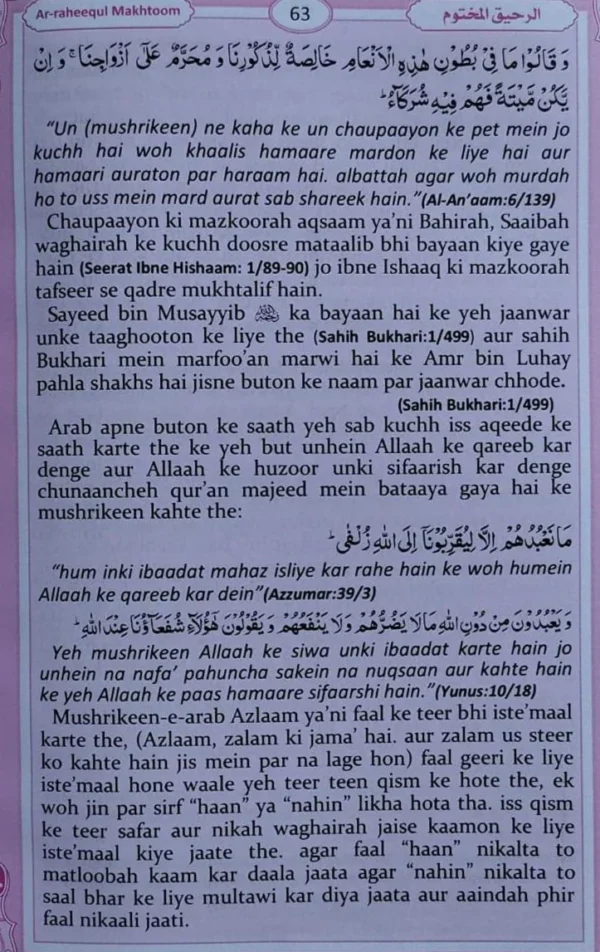 Ar-raheequl Makhtoom
63
الرحيق المختوم
وَقَالُوْا مَا فِيْ بُطُوْنِ هٰذِهِ الْاَنْعَامِ خَالِصَةٌ لِّذُكُوْرِنَا وَمُحَرَّمٌ عَلٰٓى اَزْوَاجِنَا ۚ وَاِنْ
يَّكُنْ مَّيْتَةً فَهُمْ فِيْهِ شُرَكَآءُ ؕ
“Un (mushrikeen) ne kaha ke un chaupaayon ke pet mein jo
kuchh hai woh khaalis hamaare mardon ke liye hai aur
hamaari auraton par haraam hai. albattah agar woh murdah
ho to uss mein mard aurat sab shareek hain.”(Al-An’aam:6/139)
Chaupaayon ki mazkoorah aqsaam ya’ni Bahirah, Saaibah
waghairah ke kuchh doosre mataalib bhi bayaan kiye gaye
hain (Seerat Ibne Hishaam: 1/89-90) jo ibne Ishaaq ki mazkoorah
tafseer se qadre mukhtalif hain.
Sayeed bin Musayyib ka bayaan hai ke yeh jaanwar
unke taaghooton ke liye the (Sahih Bukhari:1/499) aur sahih
Bukhari mein marfoo’an marwi hai ke Amr bin Luhay
pahla shakhs hai jisne buton ke naam par jaanwar chhode.
(Sahih Bukhari:1/499)
Arab apne buton ke saath yeh sab kuchh iss aqeede ke
saath karte the ke yeh but unhein Allaah ke qareeb kar
denge aur Allaah ke huzoor unki sifaarish kar denge
chunaancheh qur’an majeed mein bataaya gaya hai ke
mushrikeen kahte the:
مَا نَعْبُدُهُمْ اِلَّا لِيُقَرِّبُوْنَآ اِلَى اللّٰهِ زُلْفٰى ؕ
“hum inki ibaadat mahaz isliye kar rahe hain ke woh humein
Allaah ke qareeb kar dein”(Azzumar:39/3)
وَيَعْبُدُوْنَ مِنْ دُوْنِ اللّٰهِ مَا لَا يَضُرُّهُمْ وَلَا يَنْفَعُهُمْ وَيَقُوْلُوْنَ هٰٓؤُلَآءِ شُفَعَآؤُنَا عِنْدَ اللّٰهِ ؕ
Yeh mushrikeen Allaah ke siwa unki ibaadat karte hain jo
unhein na nafa’ pahuncha sakein na nuqsaan aur kahte hain
ke yeh Allaah ke paas hamaare sifaarshi hain.”(Yunus:10/18)
Mushrikeen-e-arab Azlaam ya’ni faal ke teer bhi iste’maal
karte the, (Azlaam, zalam ki jama’ hai. aur zalam us steer
ko kahte hain jis mein par na lage hon) faal geeri ke liye
iste’maal hone waale yeh teer teen qism ke hote the, ek
woh jin par sirf “haan” ya “nahin” likha hota tha. iss qism
ke teer safar aur nikah waghairah jaise kaamon ke liye
iste’maal kiye jaate the. agar faal “haan” nikalta to
matloobah kaam kar daala jaata agar “nahin” nikalta to
saal bhar ke liye multawi kar diya jaata aur aaindah phir
faal nikaali jaati.